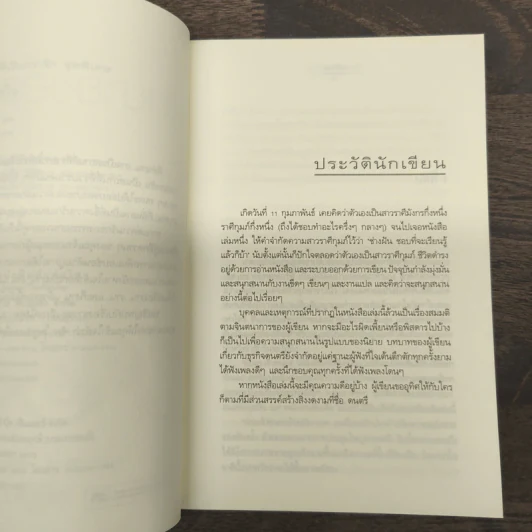 ประวัตินักเขียน
เกิดวันที่ 11 กุมภาพันธ์ เคยคิดว่าตัวเองเป็นสาวราศีมังกรกึ่งหนึ่ง
ราศีกุมภ์กึ่งหนึ่ง (ถึงได้ชอบทำอะไรครึ่งๆ กลางๆ) จนไปเจอหนังสือ
เล่มหนึ่ง ให้คำจำกัดความสาวราศีกุมภ์ไว้ว่า 'ช่างฝัน ชอบที่จะเรียนรู้
แล้วก็บ้า' นับตั้งแต่นั้นก็ปักใจตลอดว่าตัวเองเป็นสาวราศีกุมภ์ ชีวิตดำรง
อยู่ด้วยการอ่านหนังสือ และระบายออกด้วยการเขียน ปัจจุบันกำลังมุ่งมั่น
และสนุกสนานกับงานขีดๆ เขียนๆ และงานแปล และคิดว่าจะสนุกสนาน
อย่างนี้ต่อไปเรื่อยๆ
บุคคลและเหตุการณ์ที่ปรากฏในหนังสือเล่มนี้ล้วนเป็นเรื่องสมมติ
ตามจินตนาการของผู้เขียน หากจะมีอะไรผิดเพี้ยนหรือพิสดารไปบ้าง
ก็เป็นไปเพื่อความสนุกสนานในรูปแบบของนิยาย บทบาทของผู้เขียน
เกี่ยวกับธุรกิจดนตรียังจำกัดอยู่แค่ฐานะผู้ฟังที่ใจเต้นตึกตักทุกครั้งยาม
ได้ฟังเพลงดีๆ และนึกขอบคุณทุกครั้งที่ได้ฟังเพลงโดนๆ
หากหนังสือเล่มนี้จะมีคุณความดีอยู่บ้าง ผู้เขียนขออุทิศให้กับใคร
ก็ตามที่มีส่วนสรรค์สร้างสิ่งงดงามที่ชื่อ ดนตรี